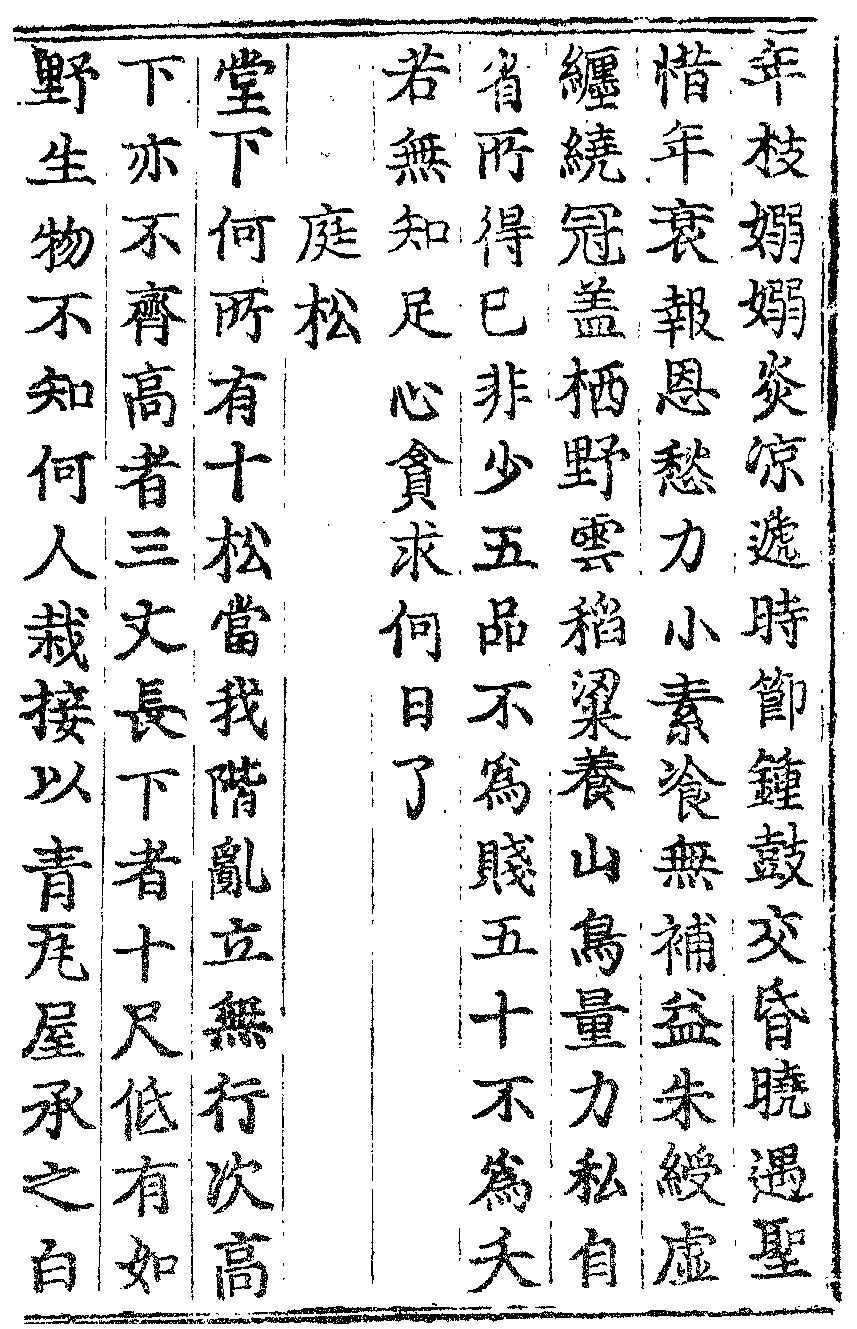 年枝嫋嫋炎凉遞時節鍾鼓交昏曉遇聖
惜年衰報恩愁力小素飡無補益朱綬虛
纏繞冠盖栖野雲稻粱養山鳥量力私自
省所得已非少五品不爲賤五十不爲夭
若無知足心貪求何日了
庭松
堂下何所有十松當我階亂立無行次高
下亦不齊高者三丈長下者十尺低有如
野生物不知何人栽接以青瓦屋承之白